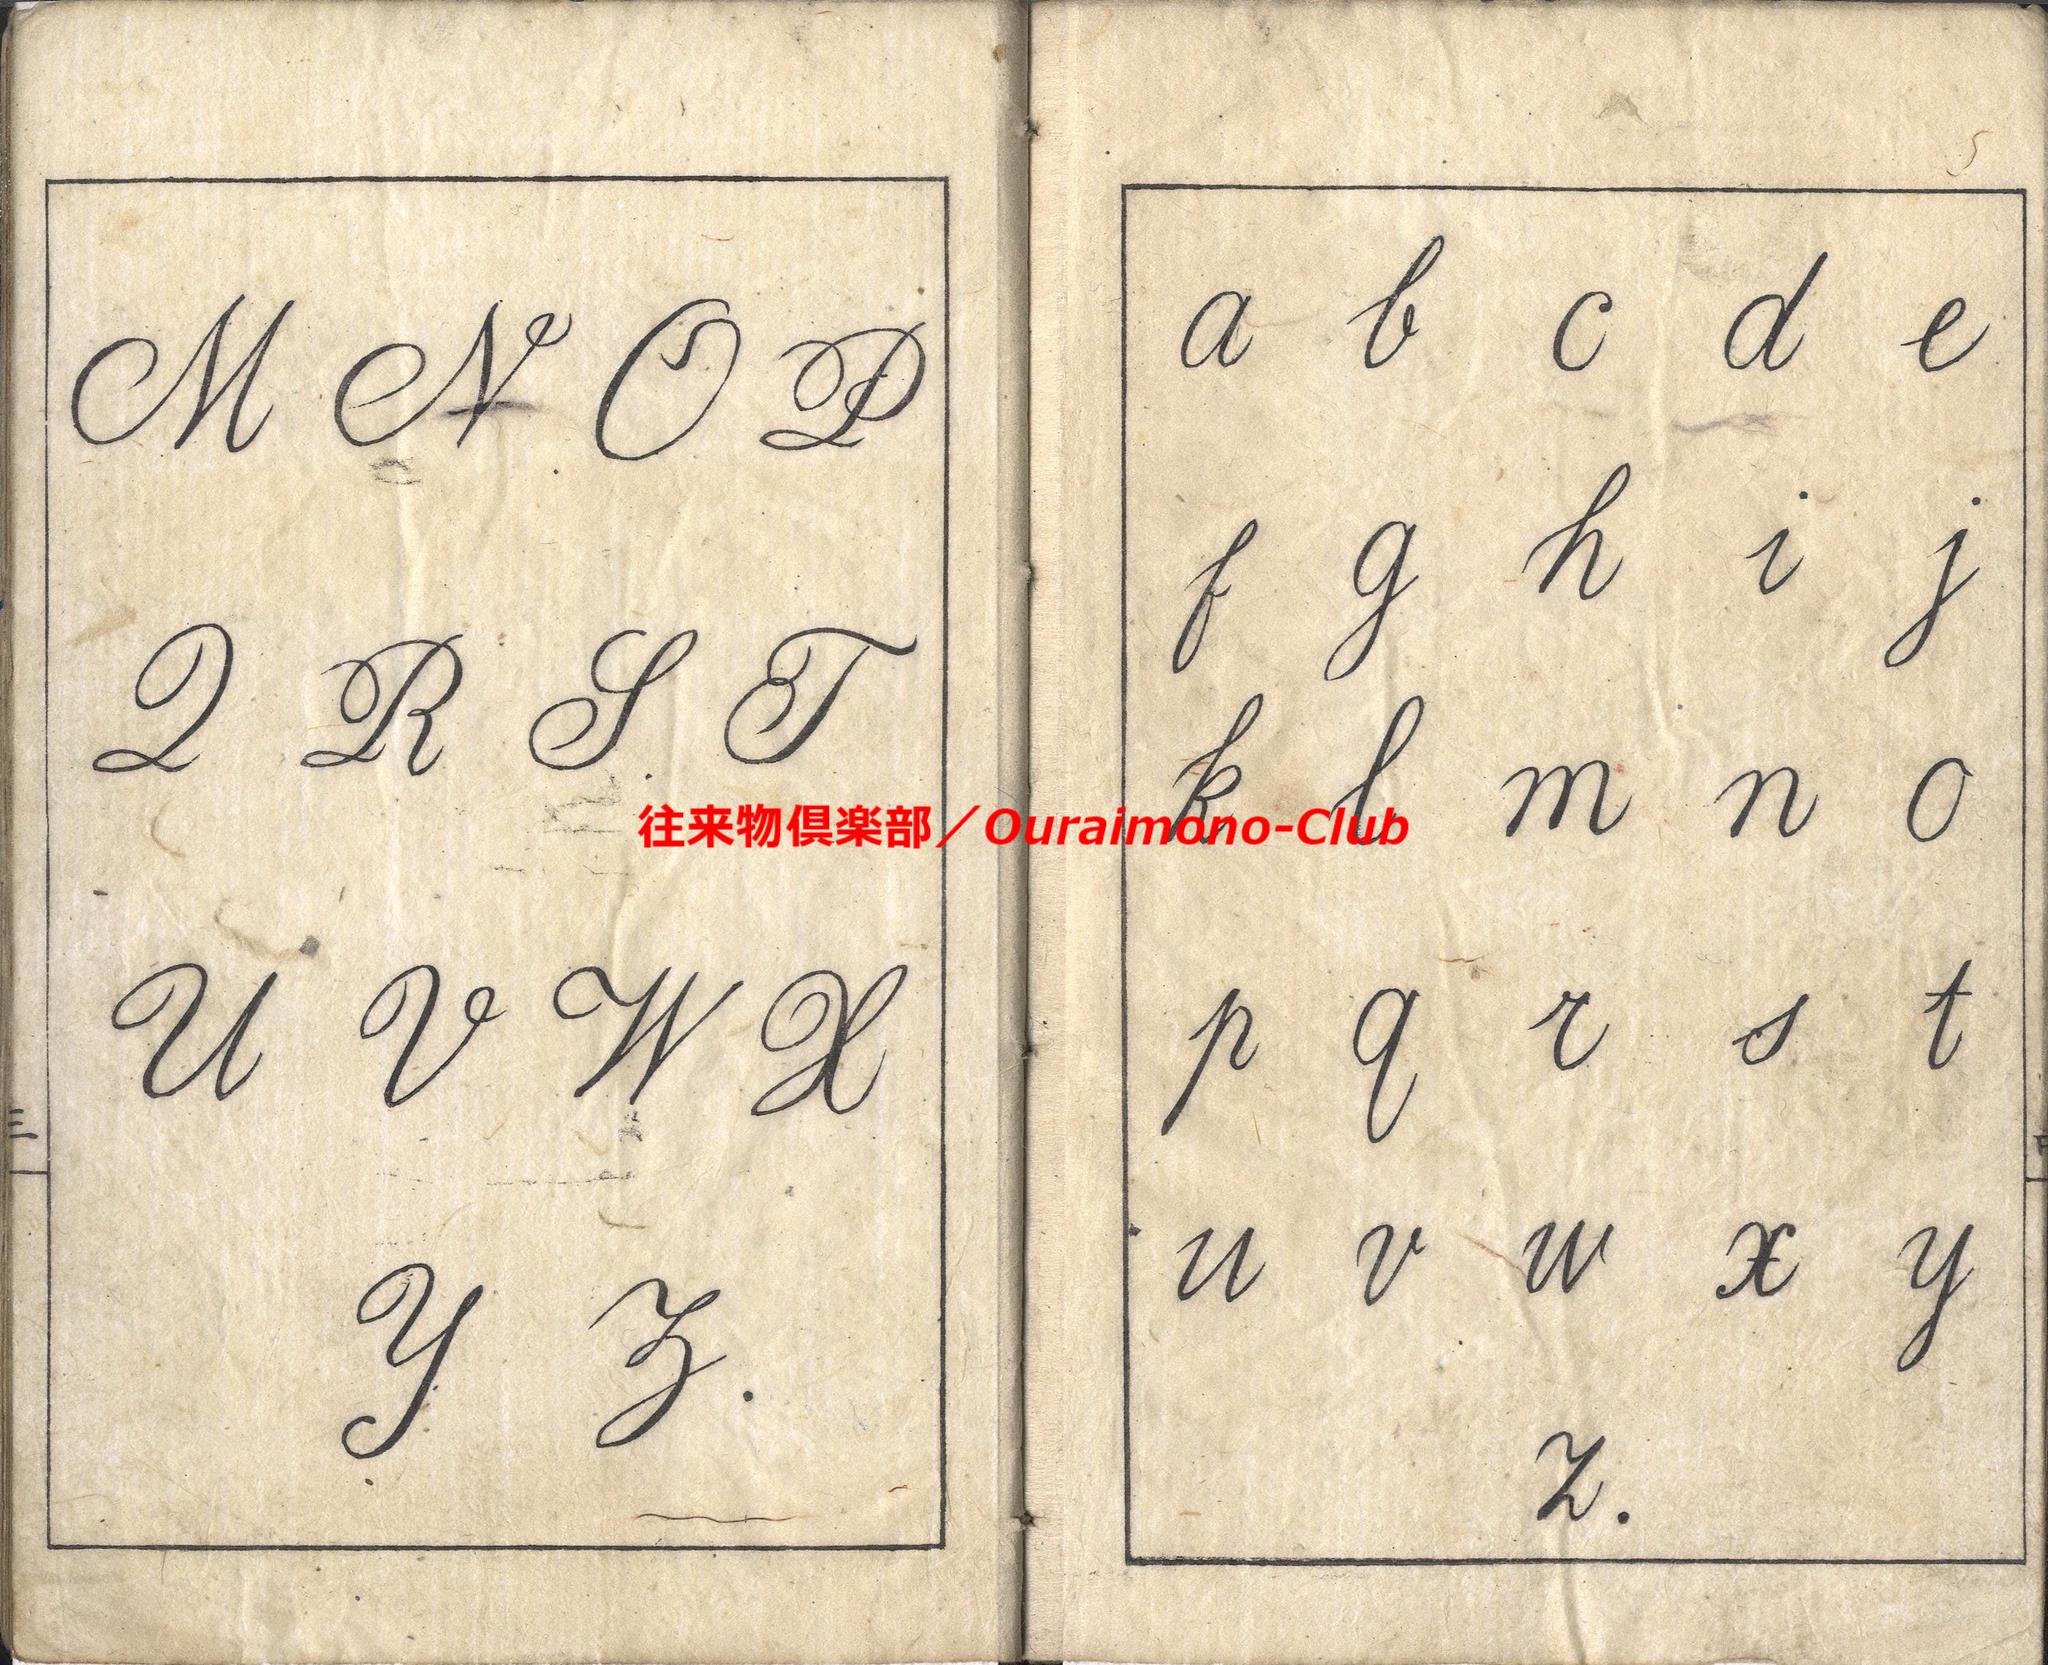 M N O P
Q R S T
U V W X
Y Z.
a b c d e
f g h i j
k l m n o
p q r s t
u v w x y
z.
往来物倶楽部／Ouraimono-Club
三